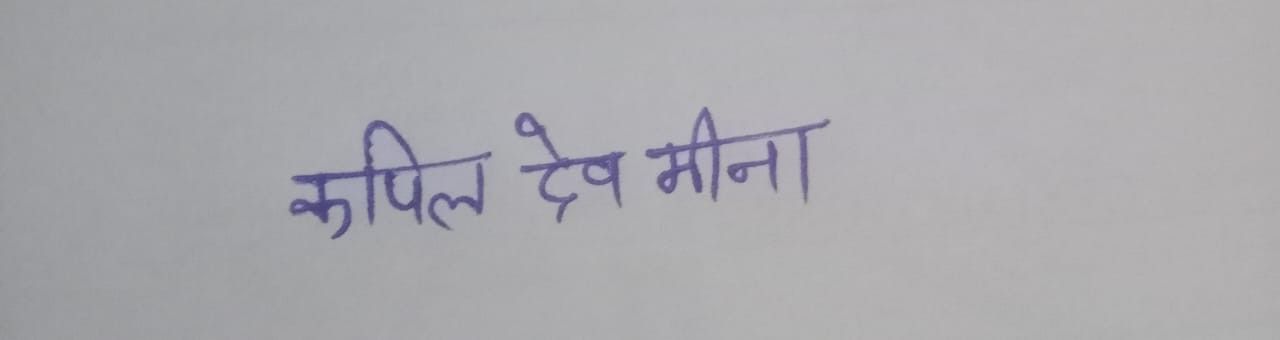 कपिल देव मीना